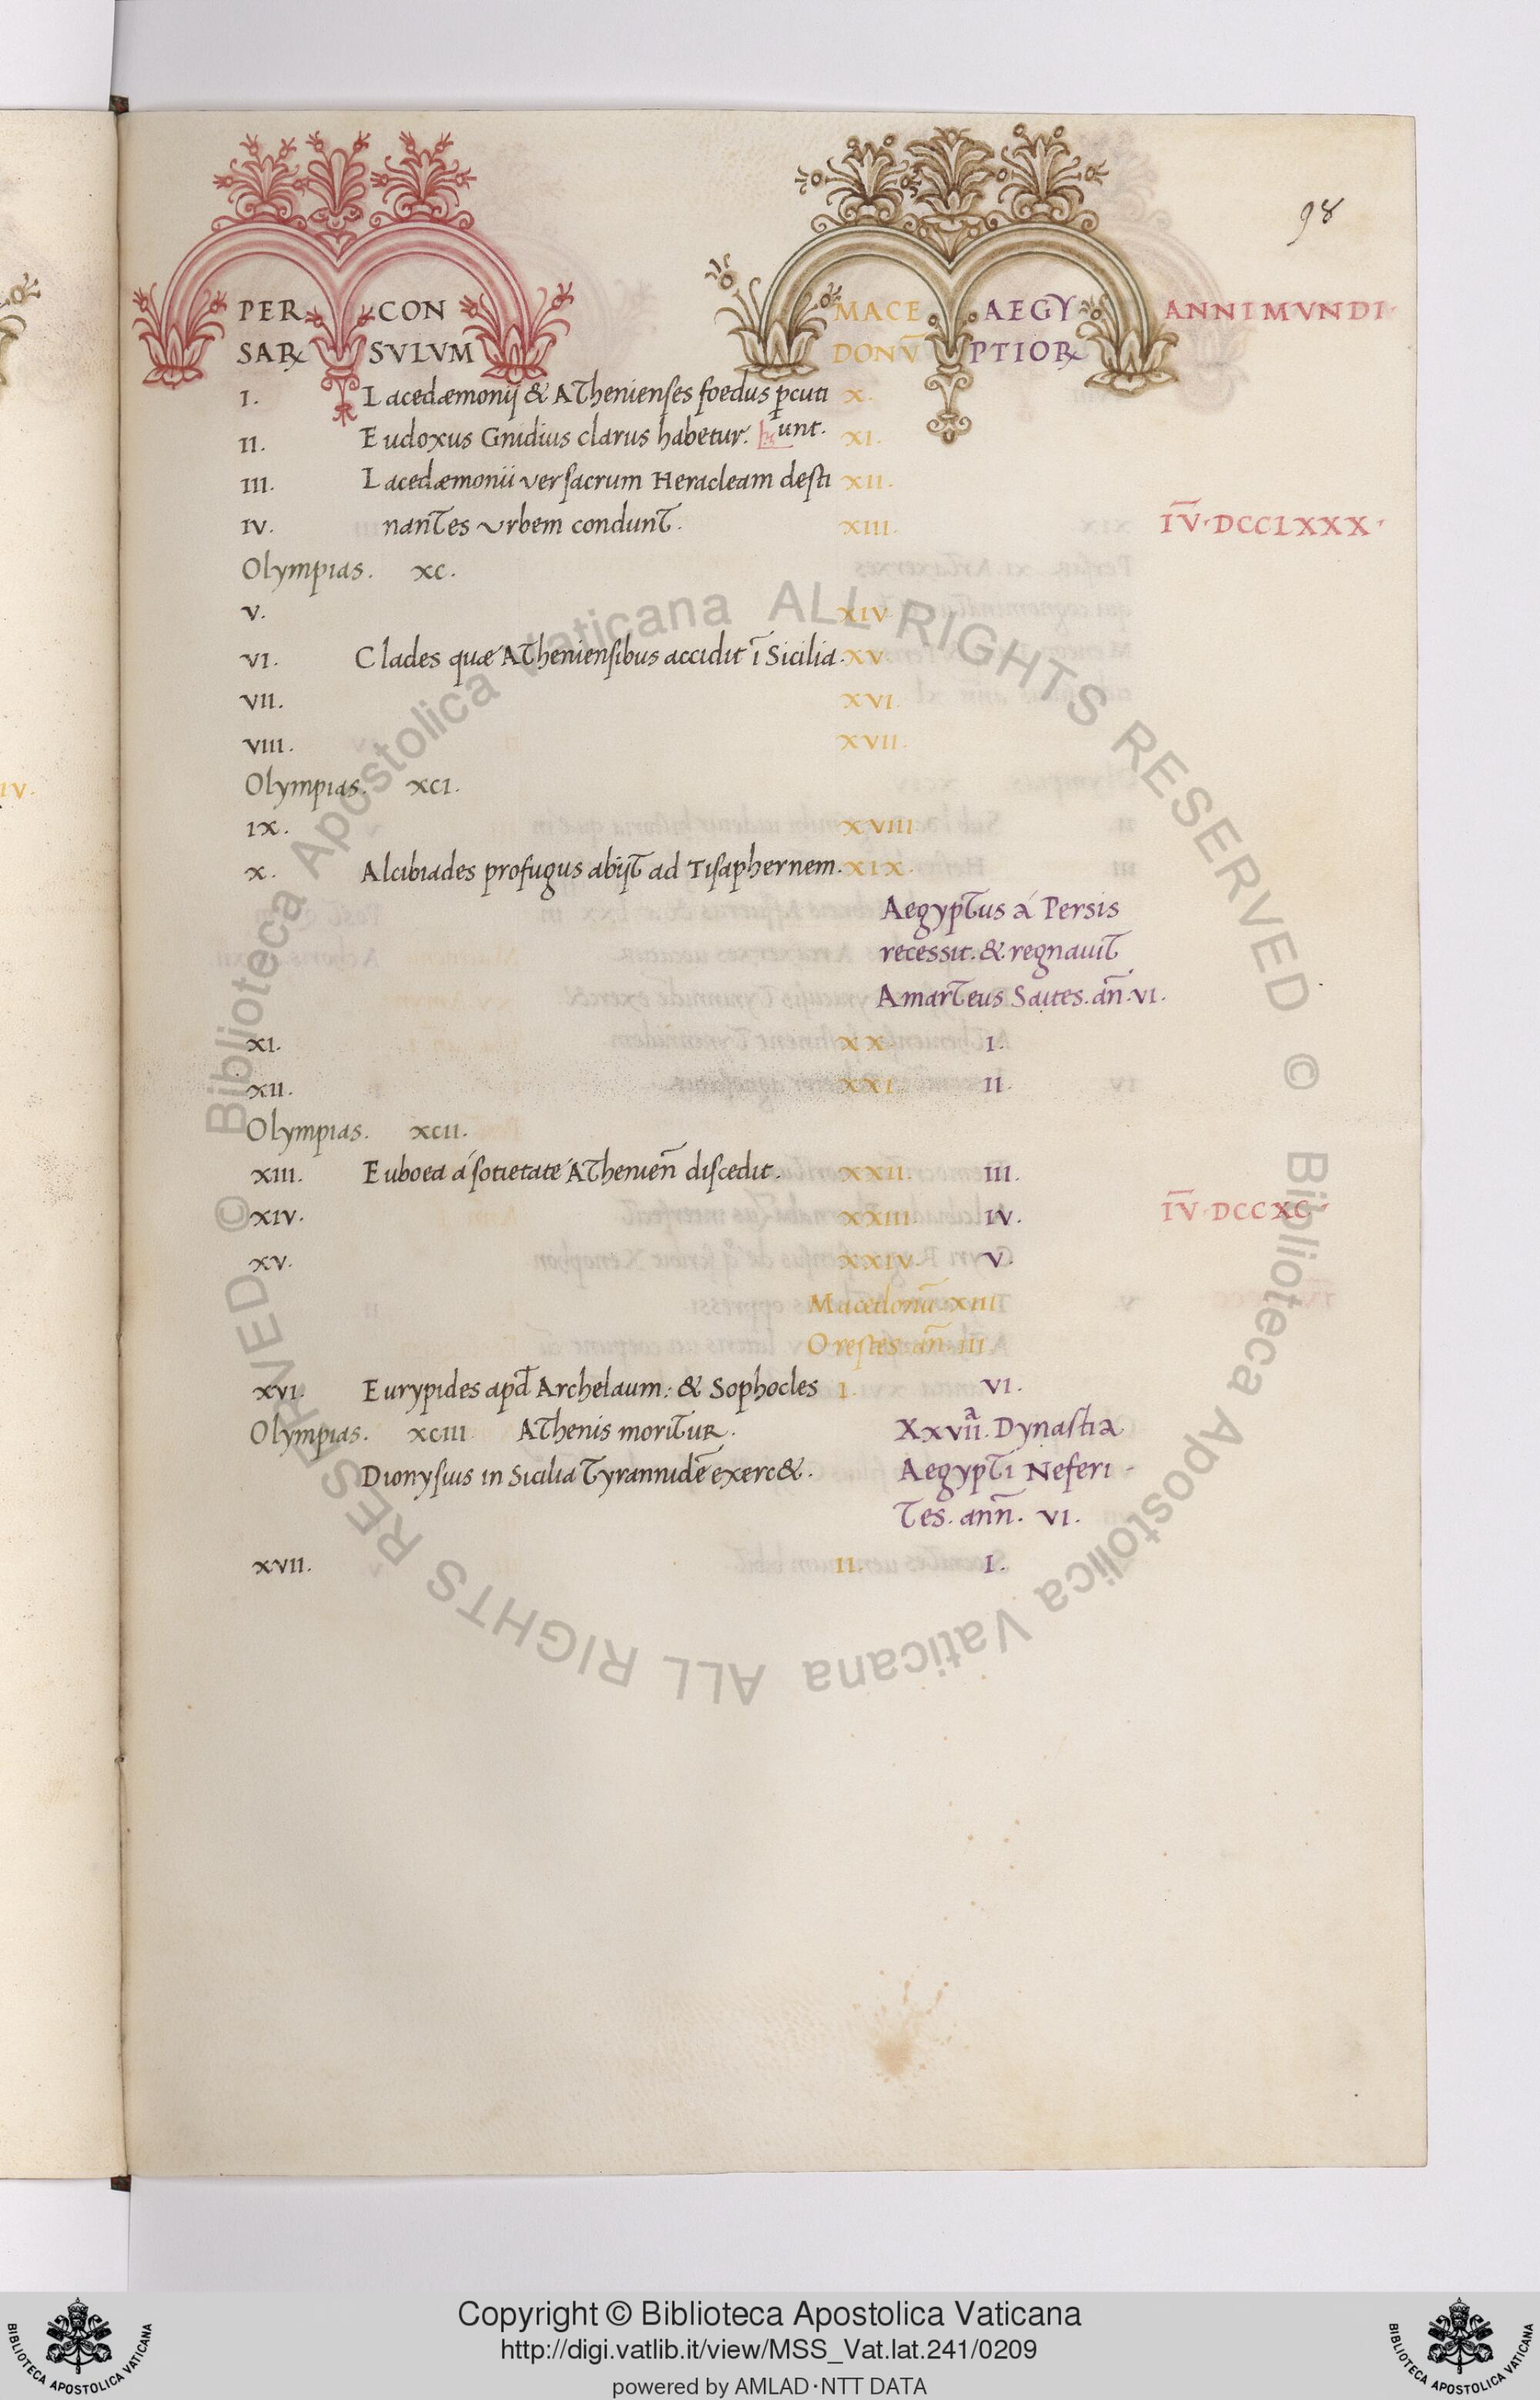 98
PER CON MACE AEGY ANNI MVNDI
SAR℞ SVLVM DONV̄ PTIOR℞
I. Lacedæmonij & Athenienses foedus pcuti X.
II. Eudoxus Gnidius clarus habetur. unt. XI.
III. Lacedæmonii ver sacrum Heracleam desti XII.
IV. nantes vrbem condunt. XIII. I̅V̅·DCCLXXX·
Olympias. XC.
V. XIV
VI. Clades quæ Atheniensibus accidit ī Sicilia. XV
VII. XVI
VIII. XVII.
Olympias. XCI.
IX. XVIII
X. Alcibiades profugus abijt ad Tisaphernem. XIX.
Aegyptus á Persis
recessit. & regnauit
Amarteus Saites. an̄. VI.
XI. XX I.
XII. XXI II.
Olympias. XCII.
XIII. Euboea á sotietate Athenien̄ discedit. XXII. III.
XIV. XXIII IV. I̅V̅·DCCXC·
XV. XXIV V.
Macedonū. XIII
Orestes an̄. III.
XVI. Eurypides apd̄ Archelaum: & Sophocles I. VI.
Olympias. XCIII Athenis moritur. Xxvııᵃ. Dynastia
Dionysius in Sicilia Tyrannidē exerc&. Aegypti Neferi-
tes. ann̄. VI.
XVII. II. I.
© Biblioteca Apostolica Vaticana ALL RIGHTS RESERVED © Biblioteca Apostolica Vaticana ALL RIGHTS RESERVED
Copyright © Biblioteca Apostolica Vaticana
http://digi.vatlib.it/view/MSS_Vat.lat.241/0209
powered by AMLAD·NTT DATA
BIBLIOTECA APOSTOLICA VATICANA
BIBLIOTECA APOSTOLICA VATICANA